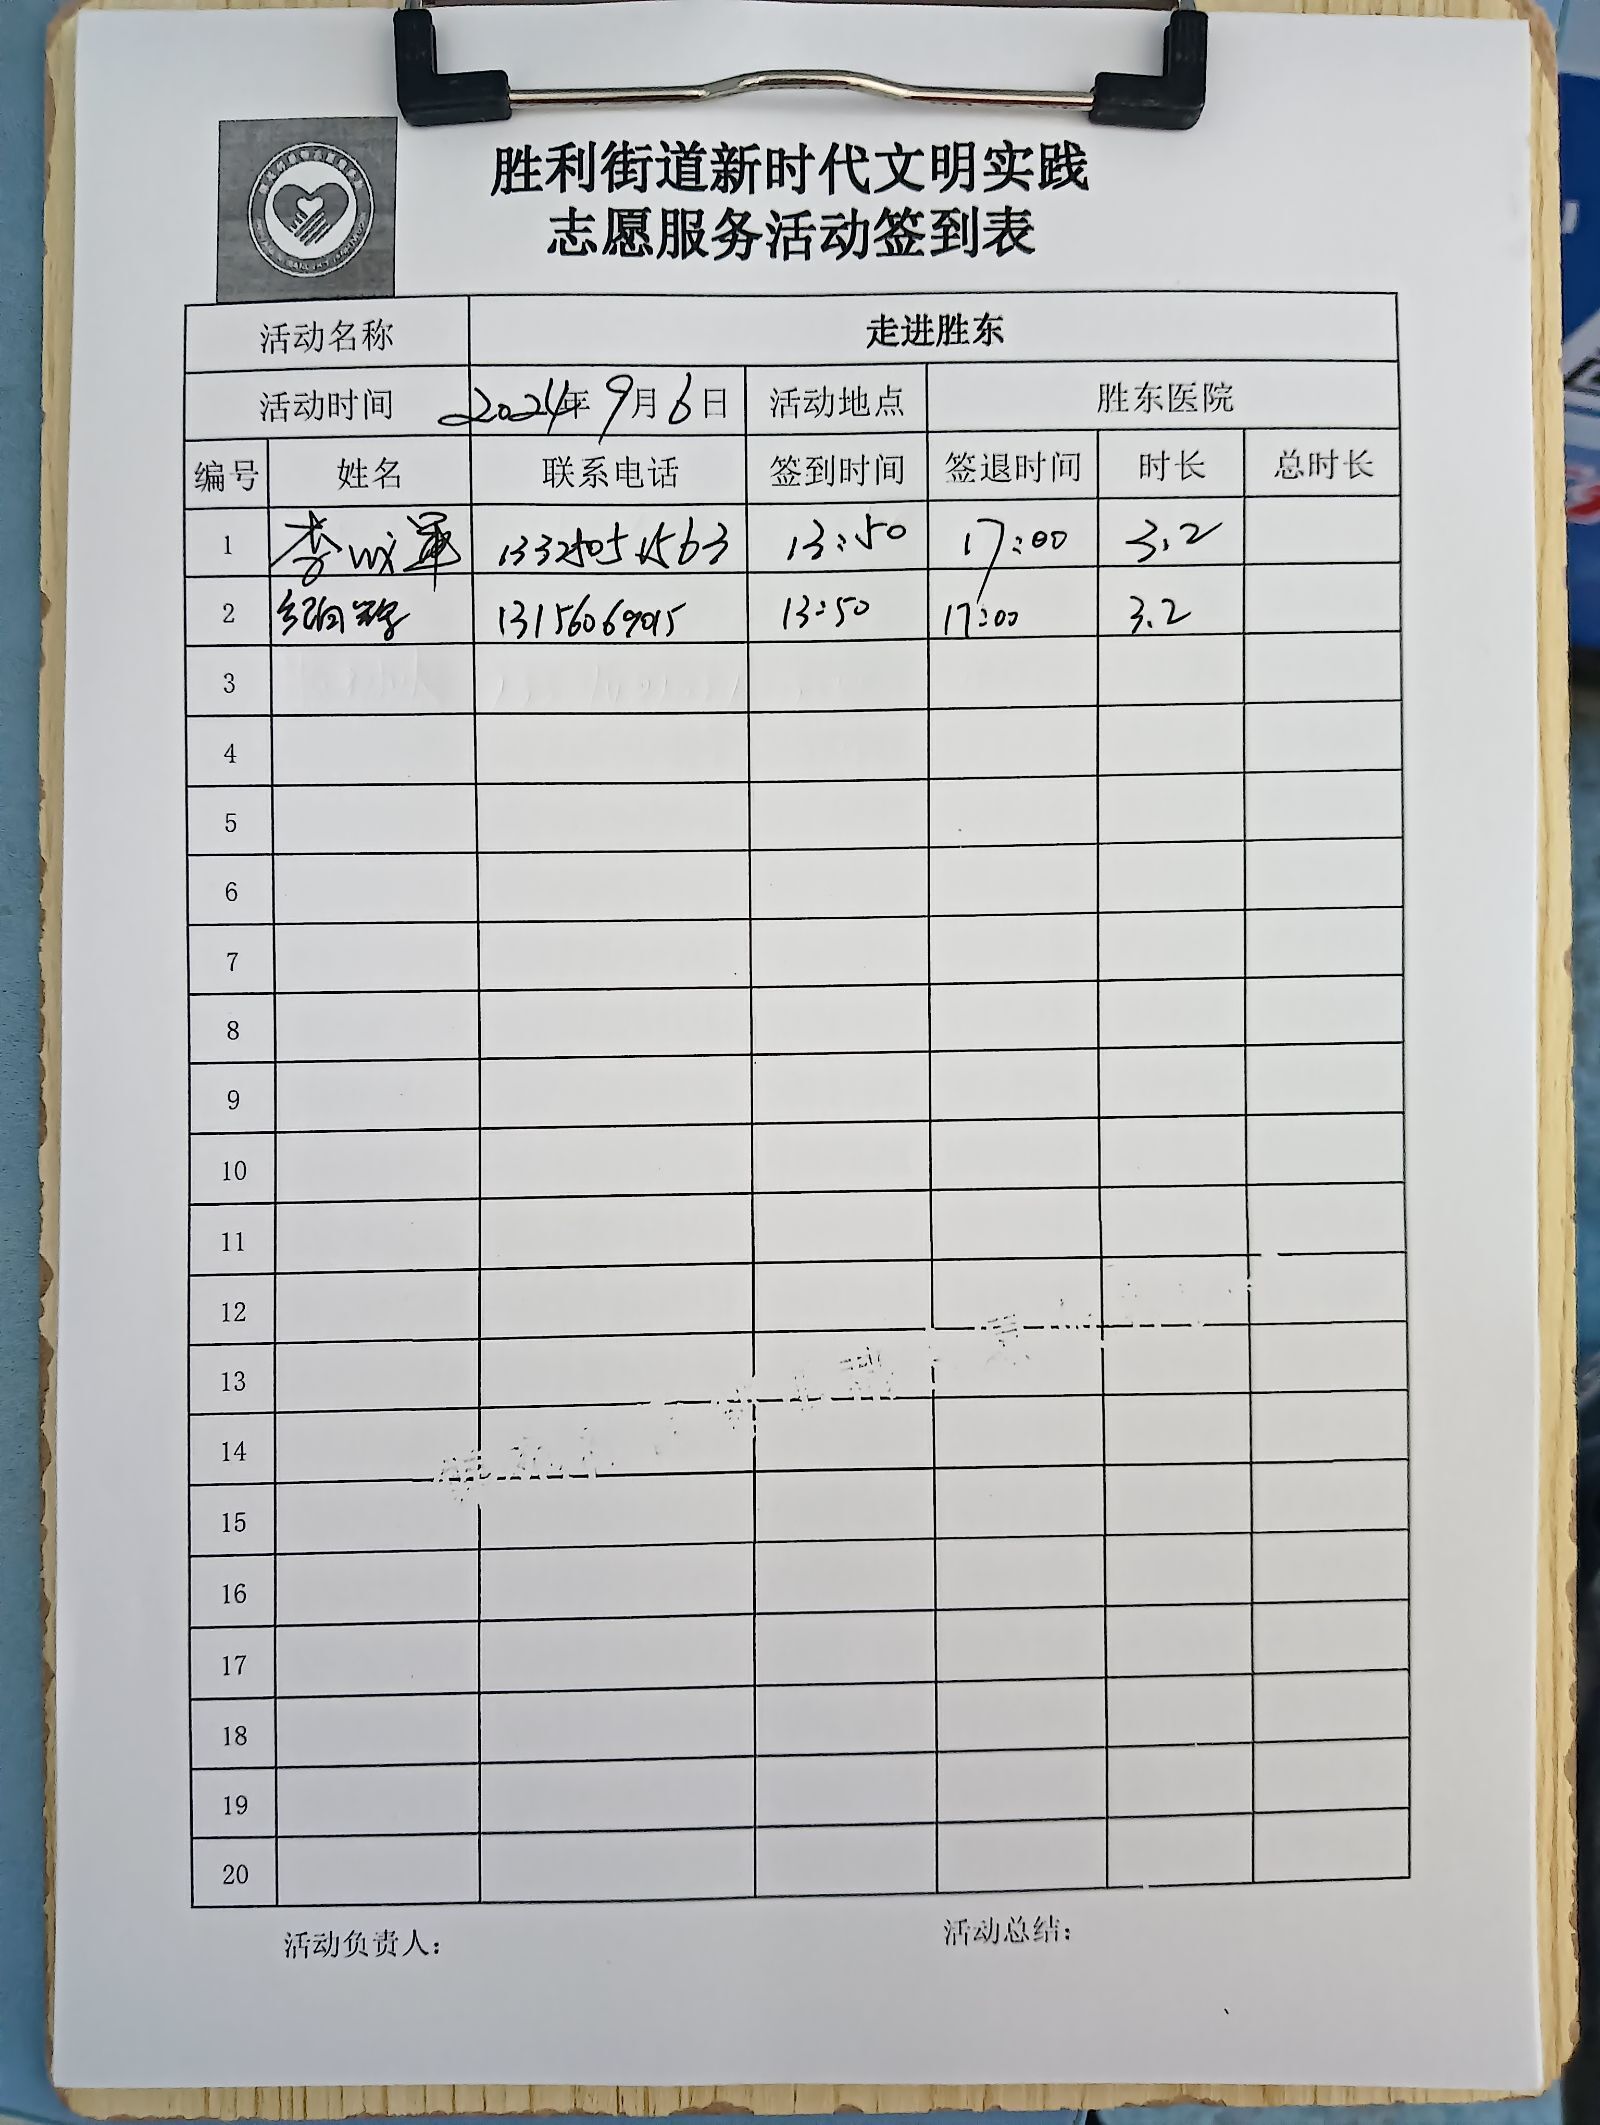 胜利街道新时代文明实践
志愿服务活动签到表
活动名称 走进胜东
活动时间 2024年9月6日 活动地点 胜东医院
编号 姓名 联系电话 签到时间 签退时间 时长 总时长
1 李成军 13325051563 13:50 17:00 3.2
2 13156069015 13:50 17:00 3.2
3
4
5
6
7
8
9
10
11
12
13
14
15
16
17
18
19
20
活动负责人： 活动总结：